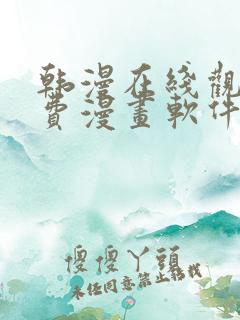 韩漫在綫觀
費漫畫軟件
傻傻丫頭
未经同意禁止转载